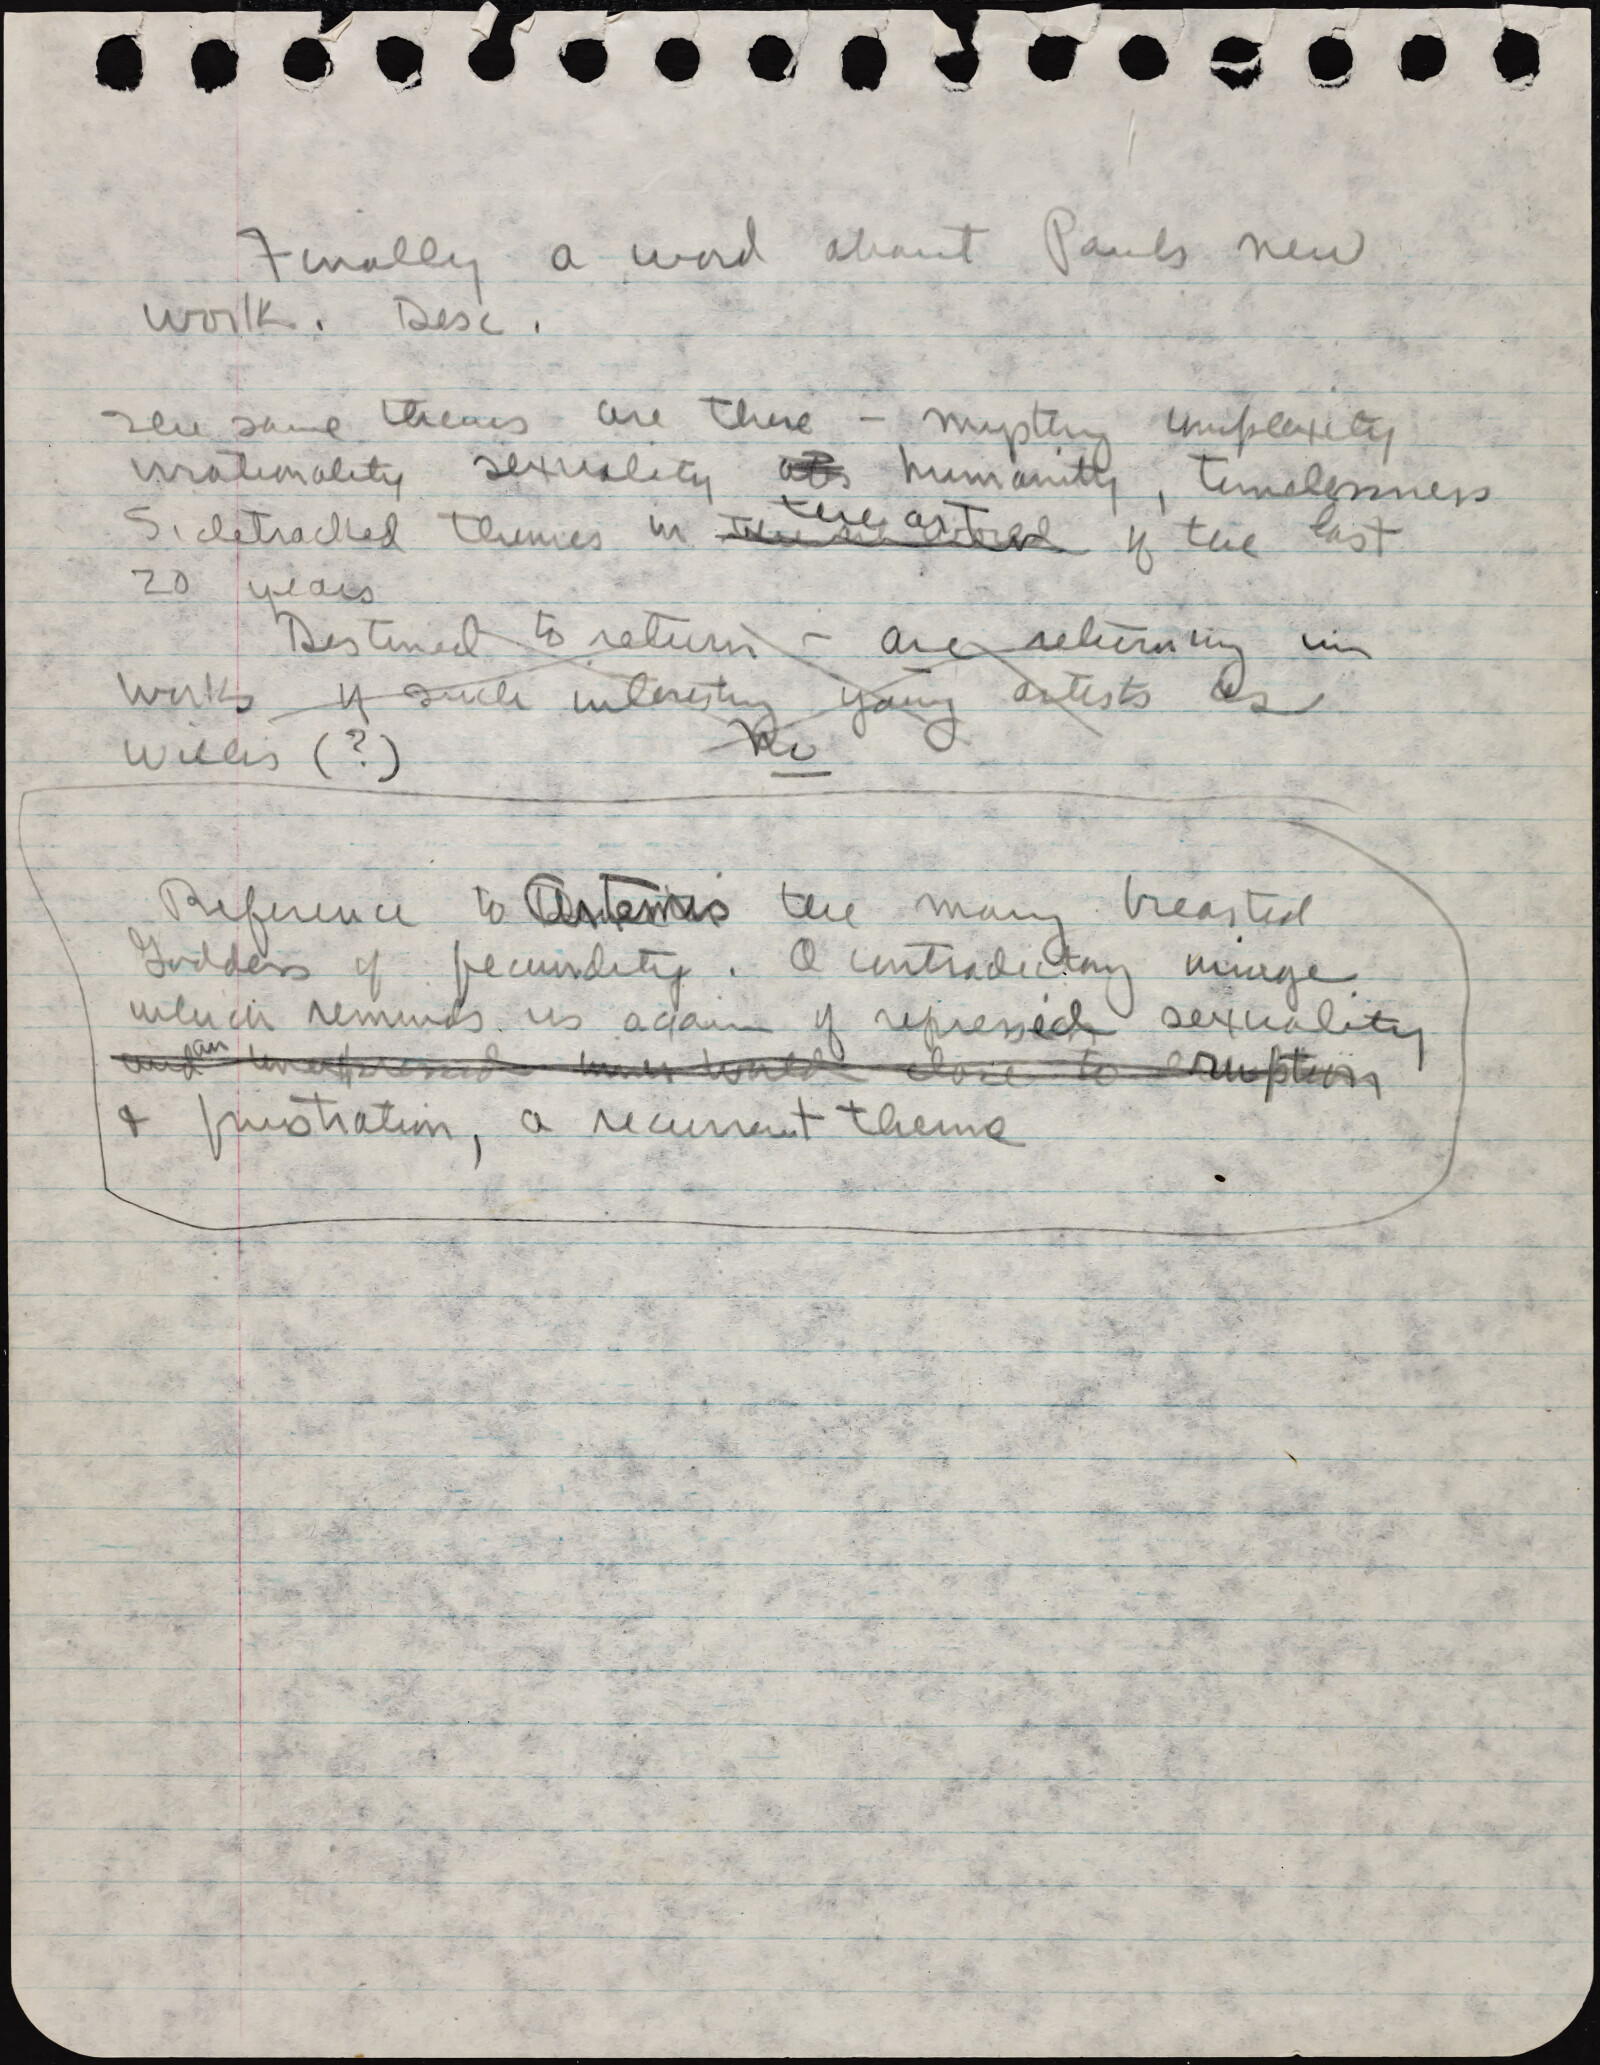 Finally a word about Pauls new
work. Desc.
The same themes are there - mystery complexity
irrationality sexuality humanity, timelessness
the art
Sidetracked themes in of the last
20 years
Destined to return - are returning in
works of such interesting young artists as
Willis (?) No
Reference to Artemis the many breasted
Goddess of fecundity. A contradictory image
which reminds us again of repressed sexuality
and an unexpressed inner world close to eruption
& frustration, a recurrent theme